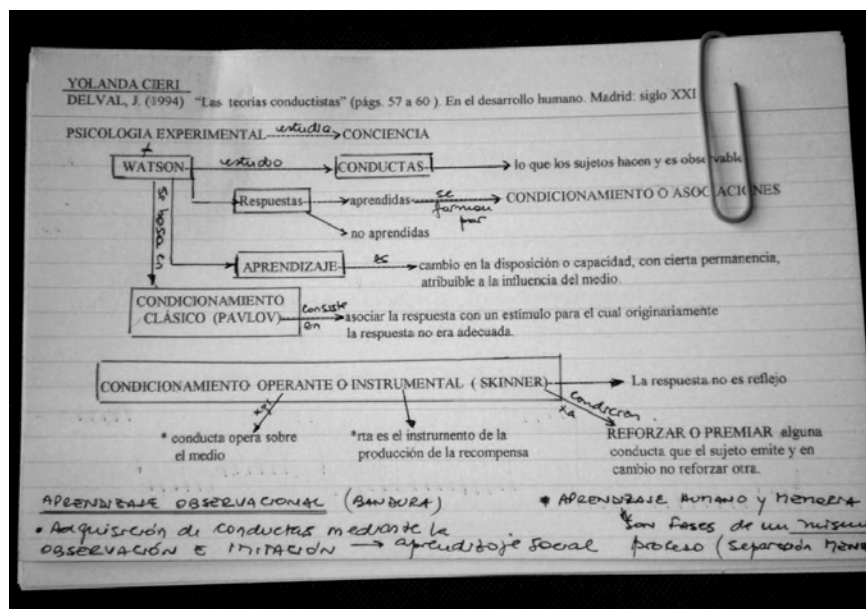 YOLANDA CIERI
DELVAL, J. (1994) "Las teorías conductistas" (págs. 57 a 60 ). En el desarrollo humano. Madrid: siglo XXI
PSICOLOGIA EXPERIMENTAL estudia CONCIENCIA
WATSON estudio CONDUCTAS lo que los sujetos hacen y es observable
Respuestas aprendidas se forman por CONDICIONAMIENTO O ASOCIACIONES
no aprendidas
se basa en
APRENDIZAJE es cambio en la disposición o capacidad, con cierta permanencia,
atribuible a la influencia del medio.
CONDICIONAMIENTO
CLÁSICO (PAVLOV) consiste en asociar la respuesta con un estímulo para el cual originariamente
la respuesta no era adecuada.
CONDICIONAMIENTO OPERANTE O INSTRUMENTAL ( SKINNER) La respuesta no es reflejo
* conducta opera sobre
el medio
*rta es el instrumento de la
producción de la recompensa
REFORZAR O PREMIAR alguna
conducta que el sujeto emite y en
cambio no reforzar otra.
APRENDIZAJE OBSERVACIONAL (BANDURA)
• Adquisición de conductas mediante la
OBSERVACIÓN E IMITACIÓN → aprendizaje social
* APRENDIZAJE HUMANO y MEMORIA
son fases de un mismo
proceso (separación